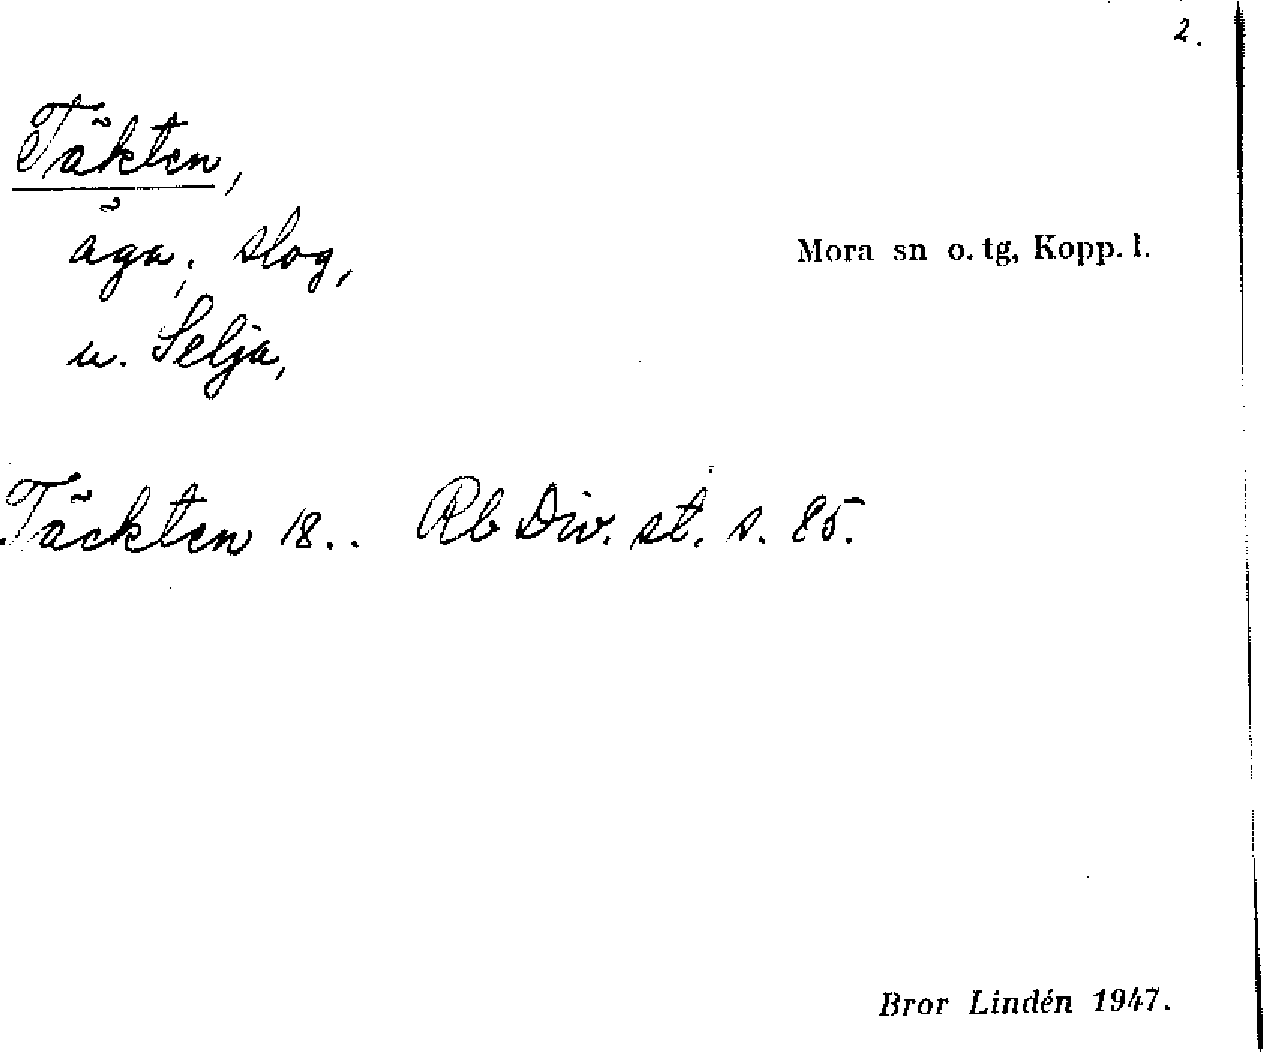 2.
Täkten,
äga; slog,
u. Selja,
Mora sn o. tg, Kopp. l.
Täckten 18.. Rb Div. st. s. 85.
Bror Lindén 1947.